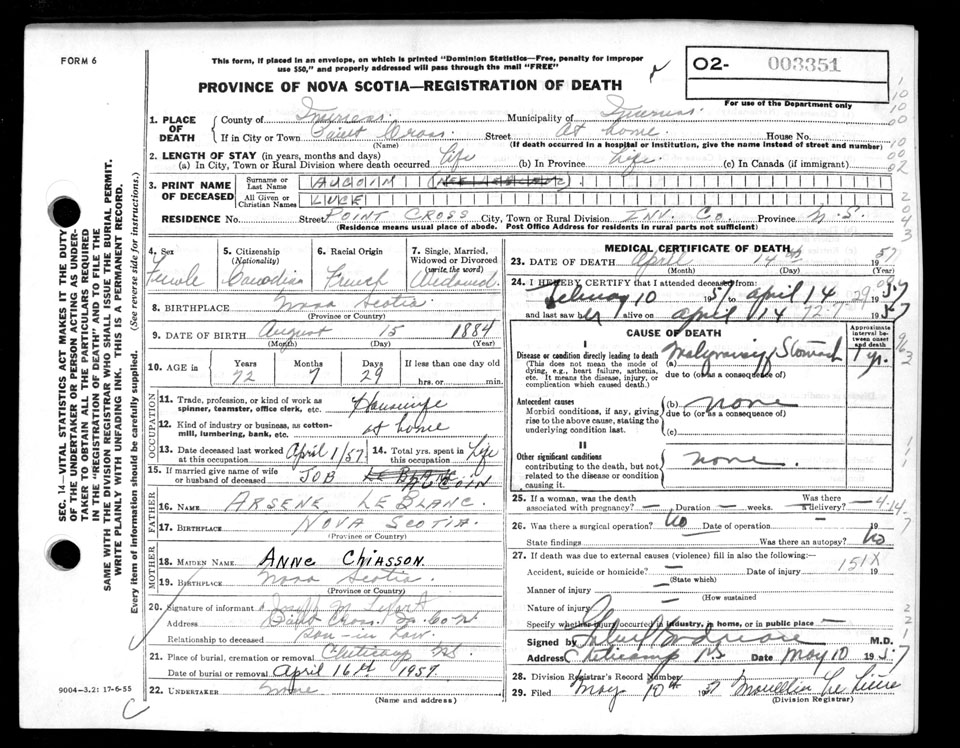 FORM 6
This form, if placed in an envelope, on which is printed "Dominion Statistics—Free, penalty for improper
use $50," and properly addressed will pass through the mail "FREE"
PROVINCE OF NOVA SCOTIA—REGISTRATION OF DEATH
O2- 003351
For use of the Department only
1. PLACE OF DEATH
County of Inverness. Municipality of Inverness.
If in City or Town Point Cross. Street At home. House No.
(Name) (If death occurred in a hospital or institution, give the name instead of street and number)
2. LENGTH OF STAY (in years, months and days)
(a) In City, Town or Rural Division where death occurred Life (b) In Province Life. (c) In Canada (if immigrant)
3. PRINT NAME OF DECEASED
Surname or Last Name AUCOIN
All Given or Christian Names LUCE
RESIDENCE No. Street POINT CROSS City, Town or Rural Division INV. CO. Province N.S.
(Residence means usual place of abode. Post Office Address for residents in rural parts not sufficient)
4. Sex 5. Citizenship (Nationality) 6. Racial Origin 7. Single, Married, Widowed or Divorced (write the word)
Female Canadian French Widowed
8. BIRTHPLACE Nova Scotia
(Province or Country)
9. DATE OF BIRTH August 15 1884
(Month) (Day) (Year)
10. AGE Years Months Days If less than one day old
72 7 29 hrs. or min.
OCCUPATION
11. Trade, profession, or kind of work as spinner, teamster, office clerk, etc. Housewife
12. Kind of industry or business, as cotton-mill, lumbering, bank, etc. at home
13. Date deceased last worked at this occupation April 1/57 14. Total yrs. spent in this occupation Life
15. If married give name of wife or husband of deceased JOB AUCOIN
FATHER
16. NAME ARSENE LEBLANC.
17. BIRTHPLACE NOVA SCOTIA.
(Province or Country)
MOTHER
18. MAIDEN NAME ANNE CHIASSON.
19. BIRTHPLACE Nova Scotia.
(Province or Country)
20. Signature of informant Joseph M
Address Point Cross
Relationship to deceased son-in law.
21. Place of burial, cremation or removal Cheticamp NS
Date of burial or removal April 16th 1957.
22. UNDERTAKER None
(Name and address)
9004-3.2: 17-6-55
SEC. 14—VITAL STATISTICS ACT MAKES IT THE DUTY
OF THE UNDERTAKER OR PERSON ACTING AS UNDER-
TAKER TO OBTAIN ALL THE PARTICULARS REQUIRED
IN THE "REGISTRATION OF DEATH" AND TO FILE THE
SAME WITH THE DIVISION REGISTRAR WHO SHALL ISSUE THE BURIAL PERMIT.
WRITE PLAINLY WITH UNFADING INK. THIS IS A PERMANENT RECORD.
Every item of information should be carefully supplied. (See reverse side for instructions.)
MEDICAL CERTIFICATE OF DEATH
23. DATE OF DEATH April 14th 1957
(Month) (Day) (Year)
24. I HEREBY CERTIFY that I attended deceased from:
10 1957 to april 14 1957
and last saw her alive on april 14 1957
CAUSE OF DEATH
Approximate interval between onset and death
I
Disease or condition directly leading to death (a) Stomach 1 yr.
(This does not mean the mode of dying, e.g., heart failure, asthenia, etc. It means the disease, injury, or complication which caused death.)
due to (or as a consequence of)
Antecedent causes (b) none
Morbid conditions, if any, giving rise to the above cause, stating the underlying condition last.
due to (or as a consequence of)
(c)
II
Other significant conditions none.
contributing to the death, but not related to the disease or condition causing it.
25. If a woman, was the death associated with pregnancy? — Duration — weeks. Was there a delivery? —
26. Was there a surgical operation? No Date of operation — 19
State findings Was there an autopsy? No
27. If death was due to external causes (violence) fill in also the following:—
Accident, suicide or homicide? — Date of injury 19
(State which)
151X
Manner of injury —
(How sustained)
Nature of injury —
Specify whether injury occurred in industry, in home, or in public place —
Signed by M.D.
Address Cheticamp NS Date May 10 1957
28. Division Registrar's Record Number
29. Filed May 10th 57
(Division Registrar)